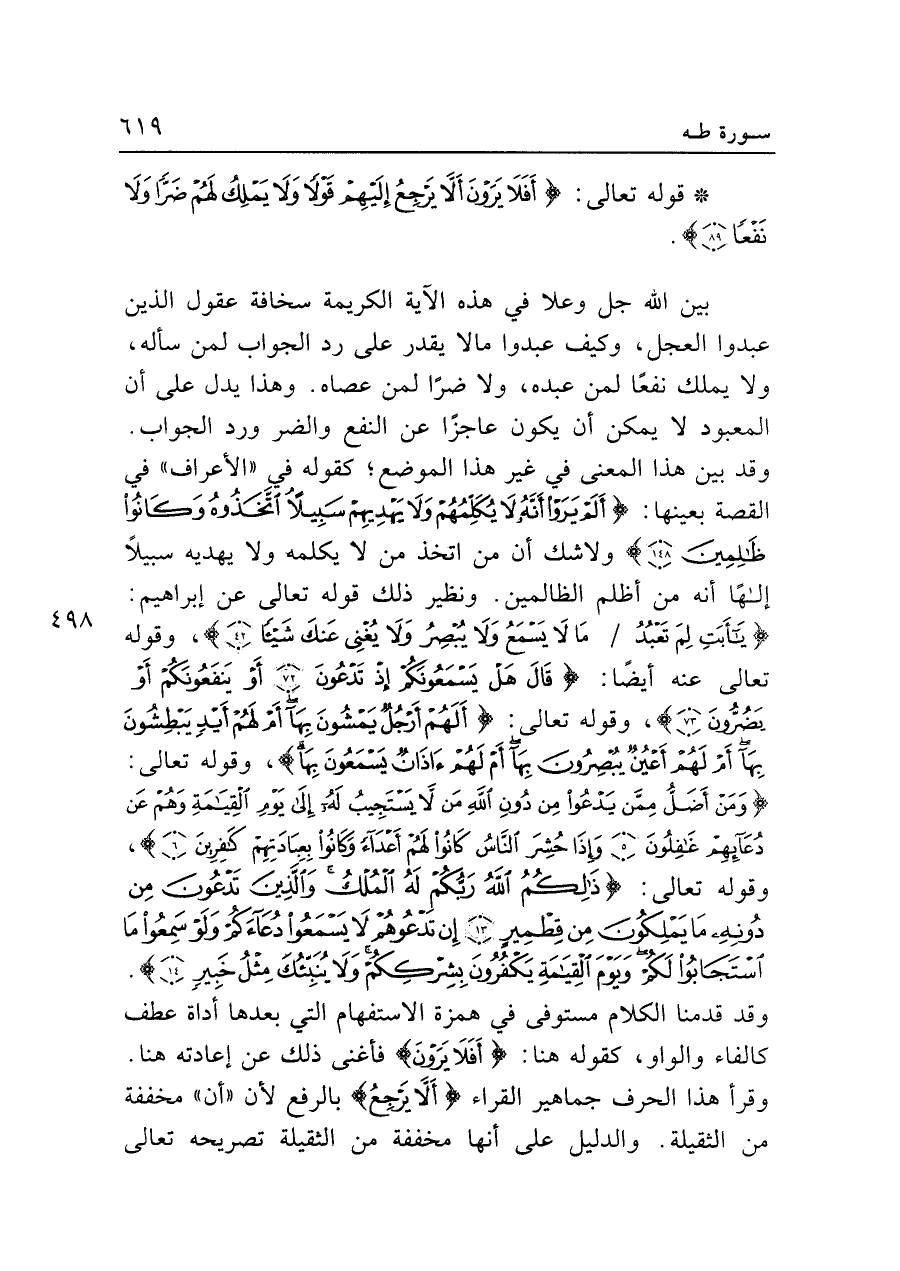 سورة طه ٦١٩
* قوله تعالى: ﴿أَفَلَا يَرَوْنَ أَلَّا يَرْجِعُ إِلَيْهِمْ قَوْلًا وَلَا يَمْلِكُ لَهُمْ ضَرًّا وَلَا
نَفْعًا ۝٨٩﴾.
بين الله جل وعلا في هذه الآية الكريمة سخافة عقول الذين
عبدوا العجل، وكيف عبدوا مالا يقدر على رد الجواب لمن سأله،
ولا يملك نفعًا لمن عبده، ولا ضرًا لمن عصاه. وهذا يدل على أن
المعبود لا يمكن أن يكون عاجزًا عن النفع والضر ورد الجواب.
وقد بين هذا المعنى في غير هذا الموضع؛ كقوله في «الأعراف» في
القصة بعينها: ﴿أَلَمْ يَرَوْا أَنَّهُ لَا يُكَلِّمُهُمْ وَلَا يَهْدِيهِمْ سَبِيلًا ٱتَّخَذُوهُ وَكَانُوا
ظَٰلِمِينَ ۝١٤٨﴾ ولاشك أن من اتخذ من لا يكلمه ولا يهديه سبيلاً
إلـٰهًا أنه من أظلم الظالمين. ونظير ذلك قوله تعالى عن إبراهيم:
٤٩٨
﴿يَٰٓأَبَتِ لِمَ تَعْبُدُ / مَا لَا يَسْمَعُ وَلَا يُبْصِرُ وَلَا يُغْنِى عَنكَ شَيْـًٔا ۝٤٢﴾، وقوله
تعالى عنه أيضًا: ﴿قَالَ هَلْ يَسْمَعُونَكُمْ إِذْ تَدْعُونَ ۝٧٢ أَوْ يَنفَعُونَكُمْ أَوْ
يَضُرُّونَ ۝٧٣﴾، وقوله تعالى: ﴿أَلَهُمْ أَرْجُلٌ يَمْشُونَ بِهَآ أَمْ لَهُمْ أَيْدٍ يَبْطِشُونَ
بِهَآ أَمْ لَهُمْ أَعْيُنٌ يُبْصِرُونَ بِهَآ أَمْ لَهُمْ ءَاذَانٌ يَسْمَعُونَ بِهَا﴾، وقوله تعالى:
﴿وَمَنْ أَضَلُّ مِمَّن يَدْعُوا مِن دُونِ ٱللَّهِ مَن لَّا يَسْتَجِيبُ لَهُۥٓ إِلَىٰ يَوْمِ ٱلْقِيَٰمَةِ وَهُمْ عَن
دُعَآئِهِمْ غَٰفِلُونَ ۝٥ وَإِذَا حُشِرَ ٱلنَّاسُ كَانُوا لَهُمْ أَعْدَآءً وَكَانُوا بِعِبَادَتِهِمْ كَٰفِرِينَ ۝٦﴾،
وقوله تعالى: ﴿ذَٰلِكُمُ ٱللَّهُ رَبُّكُمْ لَهُ ٱلْمُلْكُ ۚ وَٱلَّذِينَ تَدْعُونَ مِن
دُونِهِۦ مَا يَمْلِكُونَ مِن قِطْمِيرٍ ۝١٣ إِن تَدْعُوهُمْ لَا يَسْمَعُوا دُعَآءَكُمْ وَلَوْ سَمِعُوا مَا
ٱسْتَجَابُوا لَكُمْ ۖ وَيَوْمَ ٱلْقِيَٰمَةِ يَكْفُرُونَ بِشِرْكِكُمْ ۚ وَلَا يُنَبِّئُكَ مِثْلُ خَبِيرٍ ۝١٤﴾.
وقد قدمنا الكلام مستوفى في همزة الاستفهام التي بعدها أداة عطف
كالفاء والواو، كقوله هنا: ﴿أَفَلَا يَرَوْنَ﴾ فأغنى ذلك عن إعادته هنا.
وقرأ هذا الحرف جماهير القراء ﴿أَلَّا يَرْجِعُ﴾ بالرفع لأن «أن» مخففة
من الثقيلة. والدليل على أنها مخففة من الثقيلة تصريحه تعالى